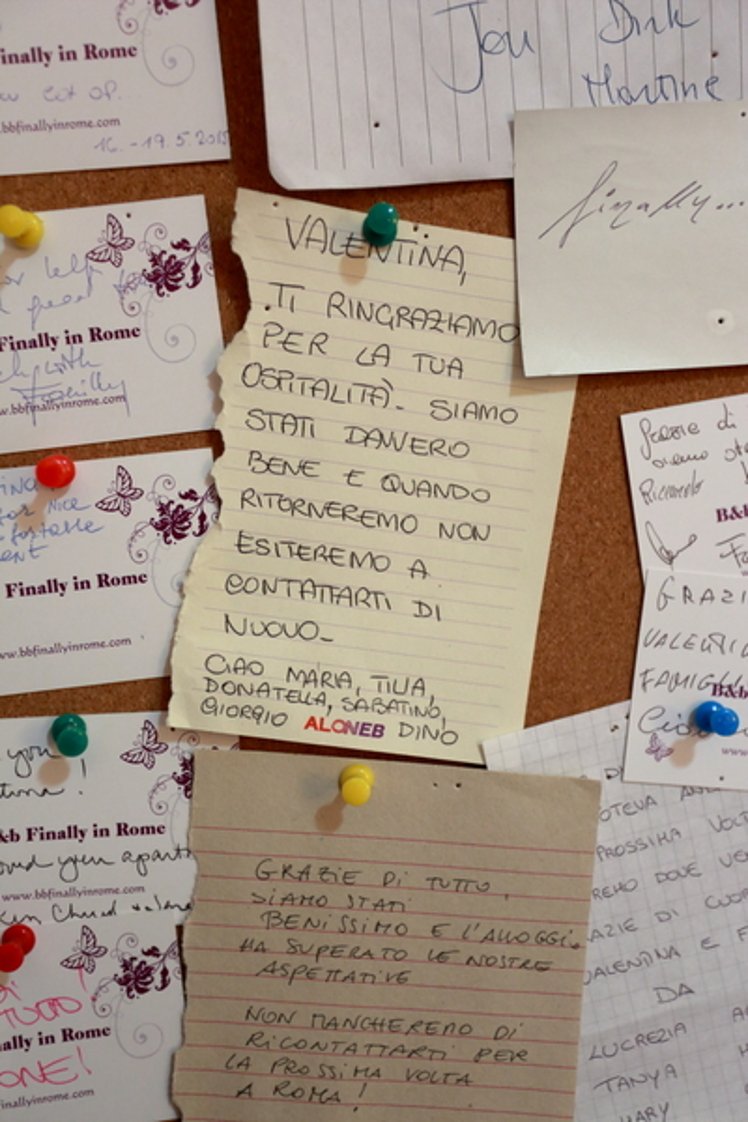 Finally in Rome
www.bbfinallyinrome.com
16.-19.5.2015
Jou Dirk
Martine
finally...
Finally in Rome
www.bbfinallyinrome.com
VALENTINA,
TI RINGRAZIAMO
PER LA TUA
OSPITALITÀ. SIAMO
STATI DAVVERO
BENE E QUANDO
RITORNEREMO NON
ESITEREMO A
CONTATTARTI DI
NUOVO_
CIAO MARIA, TILIA,
DONATELLA, SABATINO,
GIORGIO ALONEB DINO
for NICE
Finally in Rome
www.bbfinallyinrome.com
you
b Finally in Rome
loved your
www.bbfinallyinrome.com
TUTTO!
Finally in Rome
GRAZIE DI TUTTO,
SIAMO STATI
BENISSIMO E L'ALLOGGIO
HA SUPERATO LE NOSTRE
ASPETTATIVE
NON MANCHEREMO DI
RICONTATTARTI PER
LA PROSSIMA VOLTA
A ROMA!
Grazie di
siamo
B&b
GRAZI
VALENTIN
FAMIGLI
B&b
POTEVA
PROSSIMA VOLT
DOVE
AZIE DI CUOR
VALENTINA E F
DA
LUCREZIA
TANYA
MARY